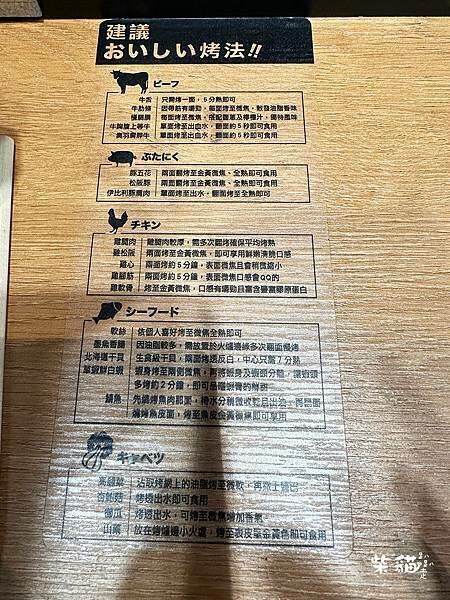 建議
おいしい烤法!!
ビーフ
牛舌 只需烤一面，5分熟即可
牛肋條 因帶筋有嚼勁，每面烤至微焦，散發油脂香味
橫膈膜 每面烤至微焦，搭配蔥蔥及檸檬汁，獨特風味
牛胸腹上等牛 單面烤至出血水，翻面約5秒即可食用
奧羽霽胛牛 單面烤至出血水，翻面約5秒即可食用
ぶたにく
豚五花 兩面翻烤至金黃微焦、全熟即可食用
松阪豚 兩面翻烤至金黃微焦、全熟即可食用
伊比利豚肩肉 單面烤至出水，翻面烤至全熟即可
チキン
雞腿肉 雞腿肉較厚，需多次翻烤確保平均烤熟
雞松阪 兩面烤至金黃微焦，即可享用鮮嫩清脆口感
雞心 兩面烤約5分鐘，表面微焦且會稍微縮小
雞腳筋 兩面烤約5分鐘，表面微焦口感會QQ的
雞軟骨 烤至金黃微焦，口感有嚼勁且富含豐富膠原蛋白
シーフード
軟絲 依個人喜好烤至微焦全熟即可
墨魚香腸 因油脂較多，需放置於火爐邊緣多次翻面慢烤
北海道干貝 生食級干貝，兩面烤透反白，中心只需7分熟
草蝦鮮白蝦 蝦身烤至兩側微焦，再將蝦身及蝦頭分離，讓蝦頭
多烤約2分鐘，即可品嚐蝦膏的鮮甜
鯖魚 先燒烤魚肉那面，待水分稍微收乾且出油，再翻面
燒烤魚皮面，烤至魚皮金黃微焦即可享用
キャベツ
高麗菜 沾取烤網上的油脂烤至微軟，再撒上鹽巴
杏鮑菇 烤透出水即可食用
櫛瓜 烤透出水，可烤至微焦增加香氣
山藥 放在烤爐邊小火處，烤至表皮呈金黃色即可食用
柴貓趴趴走